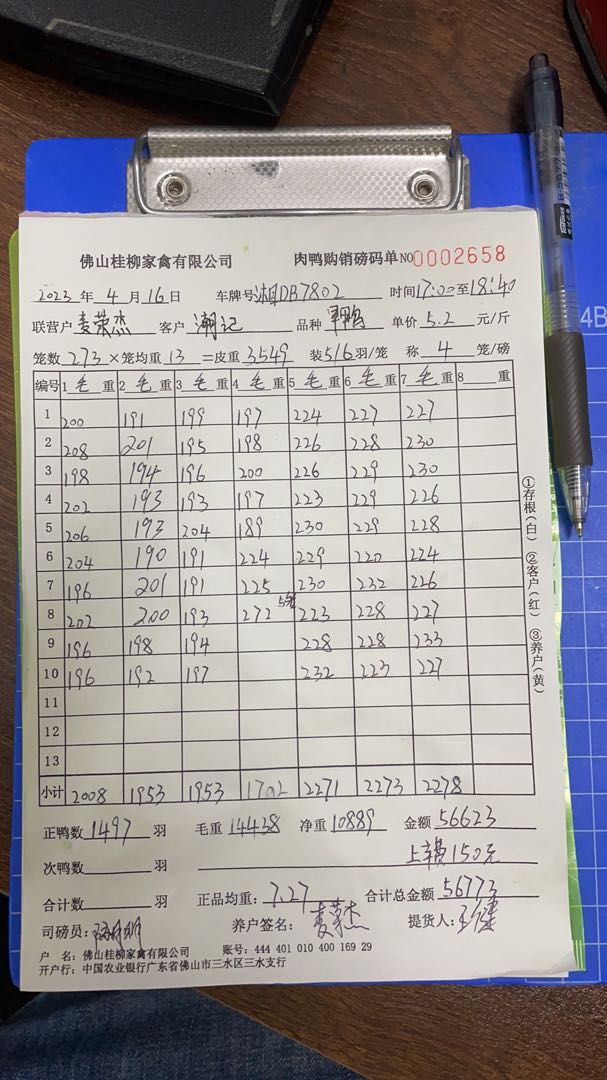 佛山桂柳家禽有限公司 肉鸭购销磅码单 NO 0002658
2023 年 4 月 16 日 车牌号 湘DB7802 时间 17:00 至 18:40
联营户 麦荣杰 客户 潮记 品种 单价 5.2 元/斤
笼数 273 ×笼均重 13 =皮重 3549 装 5/6 羽/笼 称 4 笼/磅
编号 1 毛 重 2 毛 重 3 毛 重 4 毛 重 5 毛 重 6 毛 重 7 毛 重 8 重
1 200 191 199 197 224 227 227
2 208 201 195 198 226 228 230
3 198 194 196 200 226 229 230
4 202 193 193 197 223 229 226
5 206 193 204 189 230 229 228
6 204 190 191 224 229 220 224
7 196 201 191 225 230 232 226
8 202 200 193 272 5笼 223 228 227
9 196 198 194 228 228 233
10 196 192 197 232 223 227
11
12
13
小计 2008 1953 1953 1702 2271 2273 2278
①存根(白) ②客户(红) ③养户(黄)
正鸭数 1497 羽 毛重 14438 净重 10889 金额 56623
次鸭数 羽 上车费150元
合计数 羽 正品均重: 7.27 合计总金额 56773
司磅员: 养户签名: 麦荣杰 提货人:
户 名: 佛山桂柳家禽有限公司 账号: 444 401 010 400 169 29
开户行: 中国农业银行广东省佛山市三水区三水支行
4B